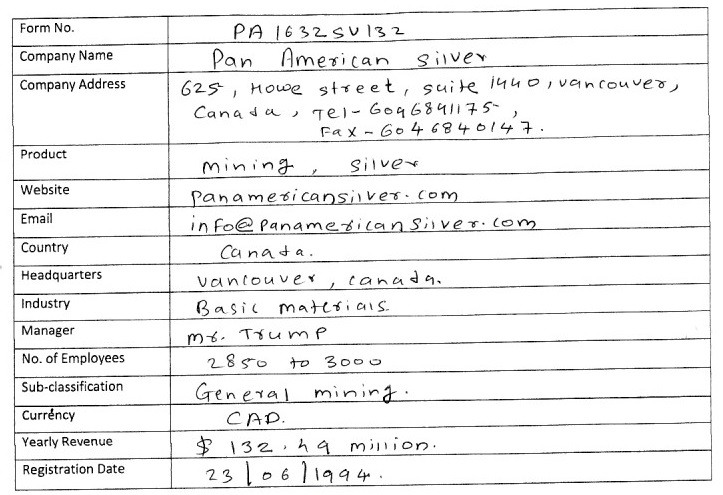 Form No. PA 1632SV132
Company Name Pan American silver
Company Address 625, Howe street, suite 1440, vancouver,
Canada, Tel-6046841175,
Fax-6046840147.
Product mining, silver
Website panamericansilver.com
Email info@panamericansilver.com
Country Canada.
Headquarters vancouver, canada.
Industry Basic materials.
Manager mr. Trump
No. of Employees 2850 to 3000
Sub-classification General mining.
Currency CAD.
Yearly Revenue $ 132.49 million.
Registration Date 23/06/1994.